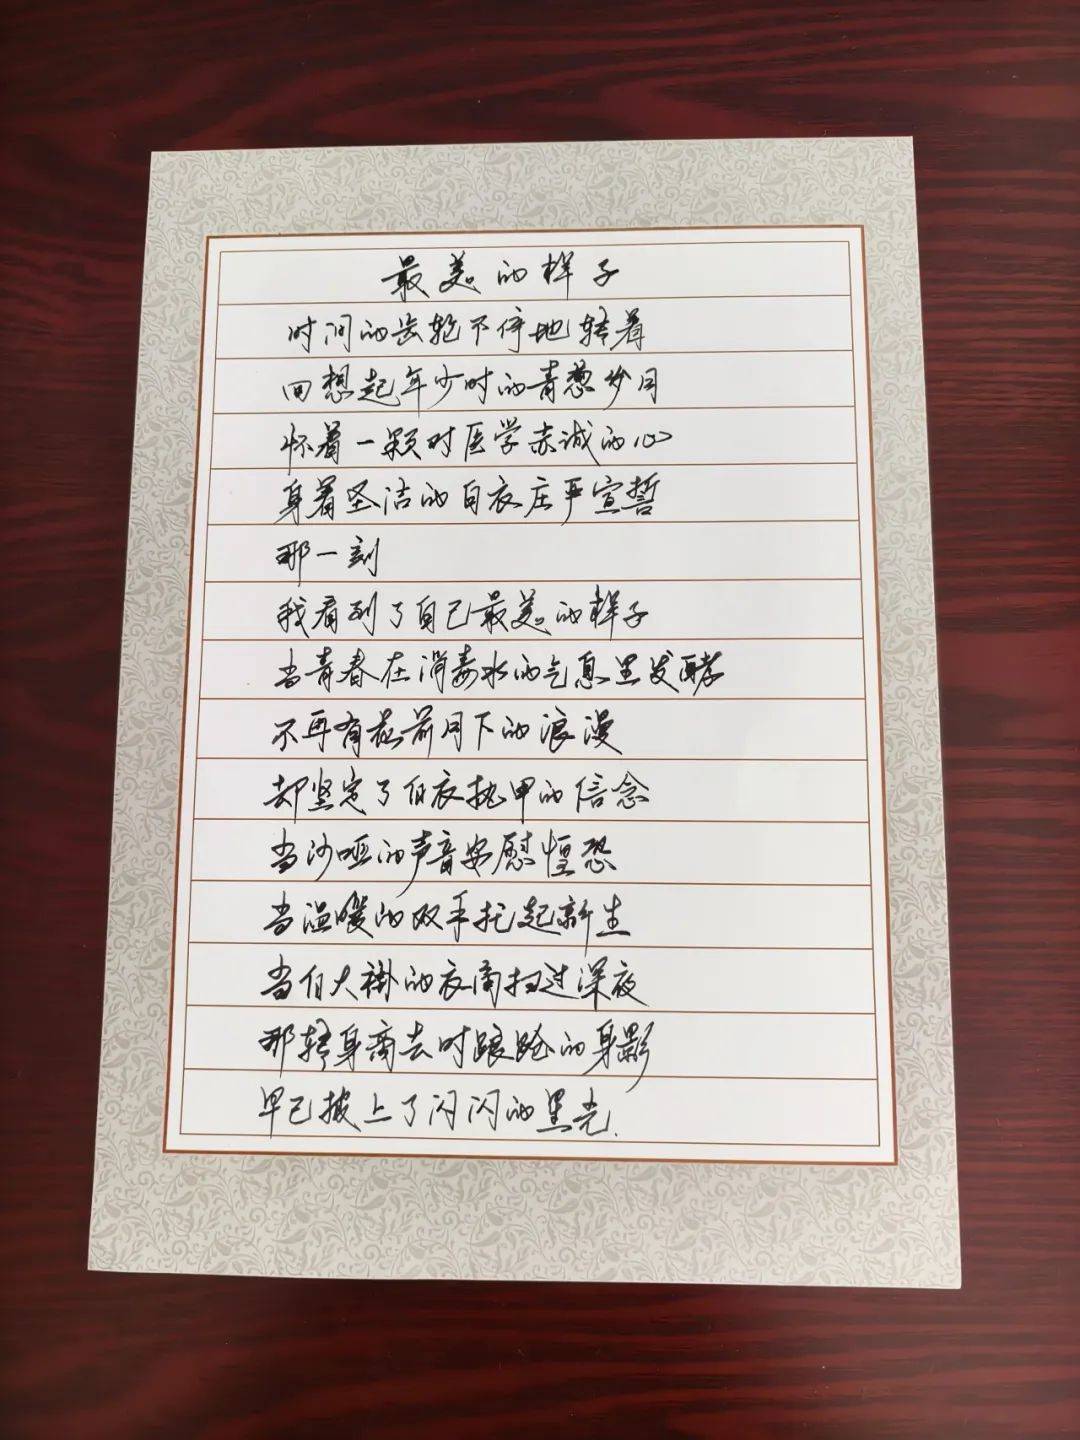 最美的样子
时间的齿轮不停地转着
回想起年少时的青葱岁月
怀着一颗对医学赤诚的心
身着圣洁的白衣庄严宣誓
那一刻
我看到了自己最美的样子
当青春在消毒水的气息里发酵
不再有花前月下的浪漫
却坚定了白衣执甲的信念
当沙哑的声音安慰惶恐
当温暖的双手托起新生
当白大褂的衣角扫过深夜
那转身离去时踉跄的身影
早已披上了闪闪的星光.